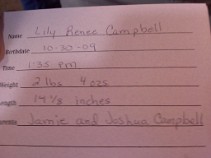 Name Lily Renee Campbell
Birthdate 10-30-09
Time 1:35 pm
Weight 2 lbs 4 ozs
Length 14 1/2 inches
Parents Jamie and Joshua Campbell